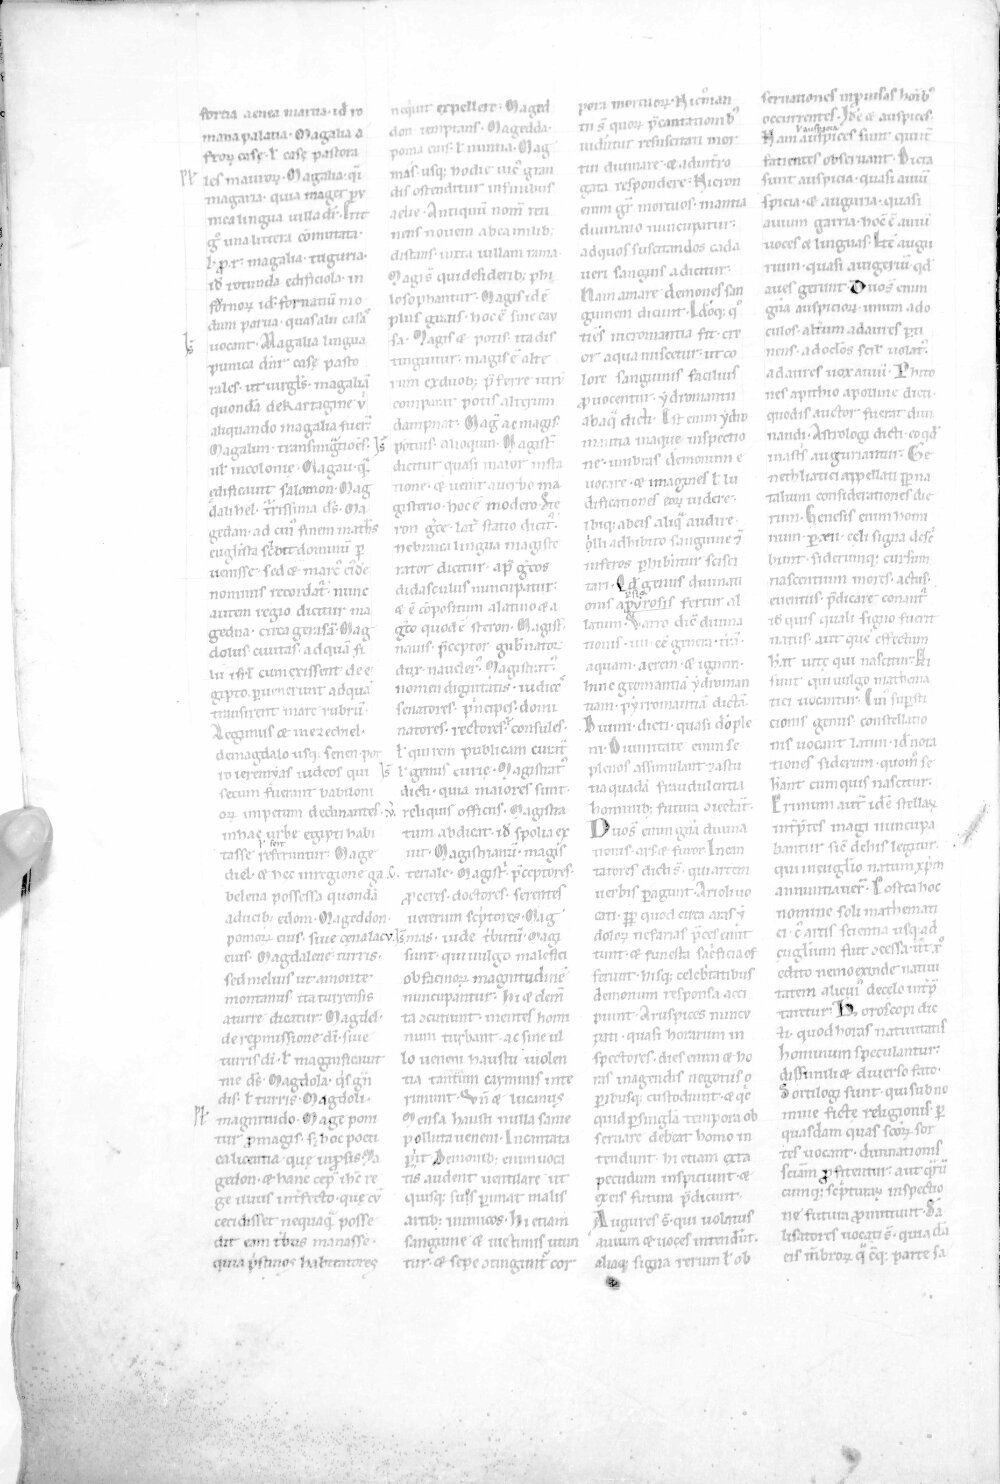 fortia aenea martia · id ro
mana palatia · Magalia a
storum case · l case pastora
les maurorum · Magalia · qi
magaria · quia mager py
nica lingua villa dr̄ ·
una littera cōmutata ·
magalia · tuguria ·
id rotunda edificiola · in
dum parua · quas alii casas
vocant · Magalia lingua
punica dnr̄ case pasto
rales · ut virgls · magaliā
quondā de Kartagine
aliquando magalia fuer̄
Magalim · transmigrōes
ul in colonie · Magau ·
edificauit salomon · Mag
gedan · ad cui finem math̄s
euglista
uenisse · sed & marc ei de
nominis recordat · nunc
autem regio dicitur ma
gedna · circa gerasā · Mag
dolus ciuitas · ad quā fi
lii isrl cum exissent de e
gipto · peruenerunt ad quā
transirent mare rubrū ·
Legimus & in ezechiel ·
de magdalo usq; senen · por
ro ieremyas iudeos qui
secum fuerant babiloni
orum impetum declinantes ·
in hac urbe egipti habi
tasse referuntur · Mage
diel · & hec in regione ga
belena possessa quondā
a ducib; edom · Mageddon ·
pomorum eius · siue cenalacu
eius · Magdalene turris ·
sed melius ut a monte
montanus ita turrensis
a turre dicatur · Magdel ·
de repromissione di · siue
turris di · l magnificauit
me ds · Magdola · qs gn̄
dis · l turris · Magdoli ·
magnitudo · Mage pom
tur pmagis · s; hoc potu
calicentia · que in psis ma
gedon · & hanc cep ihc re
ge illius interfecto · que cū
cecidisset nequaq posse
dit eam tbus manasse ·
quia pstinos habitatores
nequit expellere · Maged
don temptans · Magedda ·
poma eius · l nuntia · Mag
mas · usq; hodie uic gran
dis ostenditur in finibus
aelie · Antiquū nom reti
nens nouem ab ea milib;
distans · iuxta uillam rama ·
Magis quidesiderib; phi
losophantur · Magis id ē
plus gratis · hoc ē sine cau
sa · Magis & potis · ita dis
tinguitur · magis ē alte
rum ex duob; pferre uiri
comparat · potis alterum
dampnat · Mag ac magis
potius · alioquin · Magist
dicitur quasi maior in sta
tione · & uenit a uerbo ma
gisterio · hoc ē modero
ron gce · lat statio dicit
nebraica lingua magiste
rator dicitur · ap gcos
didasculus nuncupatur ·
& ē cōpositum a latino & a
gco quod ē steron · Magist
nauis · pceptor gubnator
dux naucler · Magistrat
nomen dignitatis · iudices
senatores · principes · domi
natores · rectores · consules ·
l qui rem publicam curant
l genus curie · Magistrat
dicti · quia maiores sunt
reliquis officiis · Magistra
tum abdicat · id spolia ex
uit · Magistrianū · magis
teriale · Magist · pceptores ·
pceres · doctores · serentes
ueterum scptores · Mag
mas · iude tbutū · Magi
sunt · qui uulgo malefici
ob facinorum magnitudinē
nuncupantur · hi & elem
ta cōcutiunt · mentes homi
num turbant · ac sine ul
lo ueneni haustu uiolen
tia tantum carminis inte
rimunt · Vn & lucanus
Mensa hausti nulla sanie
polluta ueneni · Incantata
pit · Demonib; enim uoca
tis audent uentilare · ut
quisq; suos perimat malis
artib; inimicos · hi etiam
sanguine & uictimis utun
tur · & sepe cōtingunt cor
pora mortuorum · Nicroman
tii s quorum pcantationib
uidentur resuscitati mor
tui diuinare · & ad intro
gata respondere · Nicron
enim gr mortuos · mantia
diuinatio nuncupatur ·
ad quos suscitandos cada
ueri sanguis adicitur ·
Nam amare demones san
guinem dicunt · Idoq; q
tiēs nicromantia fit · cru
or aqua miscetur · ut co
lore sanguinis facilius
prouocentur · ydromantii
ab aq dicti · Est enim ydro
mantia in aque inspectio
ne · umbras demonum e
uocare · & imagines l lu
dificationes eorum uidere ·
ibiq; ab eis aliq audire
ubi adhibito sanguine
inferos phibentur scisci
tari · Qd genus diuinati
onis a persis fertur al
latum · Varro dic diuina
tionis · iiii · eē genera · trā
aquam · aerem · & ignem ·
hinc geomantiā ydroman
tiam · pyromantiā dictā ·
Diuini · dicti · quasi dō ple
ni · Diuinitate enim se
plenos assimulant · & astu
tia quadā fraudulentia
hominib; futura cōiectāt ·
Duo s enim gna diuina
tionis · ars & furor · Incan
tatores dicti s · qui artem
uerbis pagunt · Arioli uo
cati · pp quod circa aras
dolorum nefarias pces emit
tunt · & funesta sacrificia of
ferunt · hisq; celebratibus
demonum responsa acci
piunt · Aruspices nuncu
pati · quasi horarum in
spectores · dies enim & ho
ras in agendis negotiis o
peribusq; custodiunt · & qe
quid p singla tempora ob
seruare debeat homo in
tendunt · hi etiam exta
pecudum inspiciunt · &
ex eis futura pdicunt ·
Augures s · qui uolatus
auium & uoces intendunt ·
aliaq; signa rerum l ob
seruationes inpuisas hoib
occurrentes · Idē & auspices ·
Nam auspices sunt quē iter
l auspicia
facientes obseruant · Dicta
sunt auspicia · quasi auiū
spicia · & auguria · quasi
auium garria · hoc ē auiū
uoces & linguas · Itē augu
rium · quasi auigeriū qd
aues gerunt · Duo s enim
gna auspiciorum · unum ad o
culos · altum ad aures pti
nens · ad oclos scil uolat ·
ad aures uox auiū · Phito
nes a pithio apolline dicti ·
quod is auctor fuerat diui
nandi · Astrologi dicti · eo qd
in astis auguriantur · Ge
nethliatici appellati pp na
talium considerationes die
rum · Genesis enim homi
num p xii · celi signa descri
bunt · siderumq; cursum
nascentium mores · actus ·
euentus · pdicare conant
id quis quali signo fuerit
natus · aut que effectum
habt uite qui nascitur · Hi
sunt qui uulgo mathema
tici uocantur · Cui supsti
cionis genus · constellatio
nis uocant latini · id nota
tiones siderum · quom se
habant cum quis nascitur ·
Primum aut idē stellarum
intprtes magi nuncupa
bantur · sic de his legitur ·
qui in euglio natum xpm
annuntiauer · Postea hoc
nomine soli mathemati
ci · ē artis scientia usq; ad
euglium fuit cōcessa · ut xp
edito nemo exinde natiui
tatem alicui de celo intp
taretur · Horoscopi dic
ti · quod horas natiuitatis
hominum speculantur ·
dissimili & diuerso fato ·
Sortilogi sunt · qui sub no
mine ficte religionis · p
quasdam quas scorum sor
tes uocant · diuinationis
sciam pfitentur · aut qrū
cumq; scpturarum inspectio
ne futura pmittunt · Sa
lisatores uocati s · quia dū
eis mbrorum q cq; parte sa